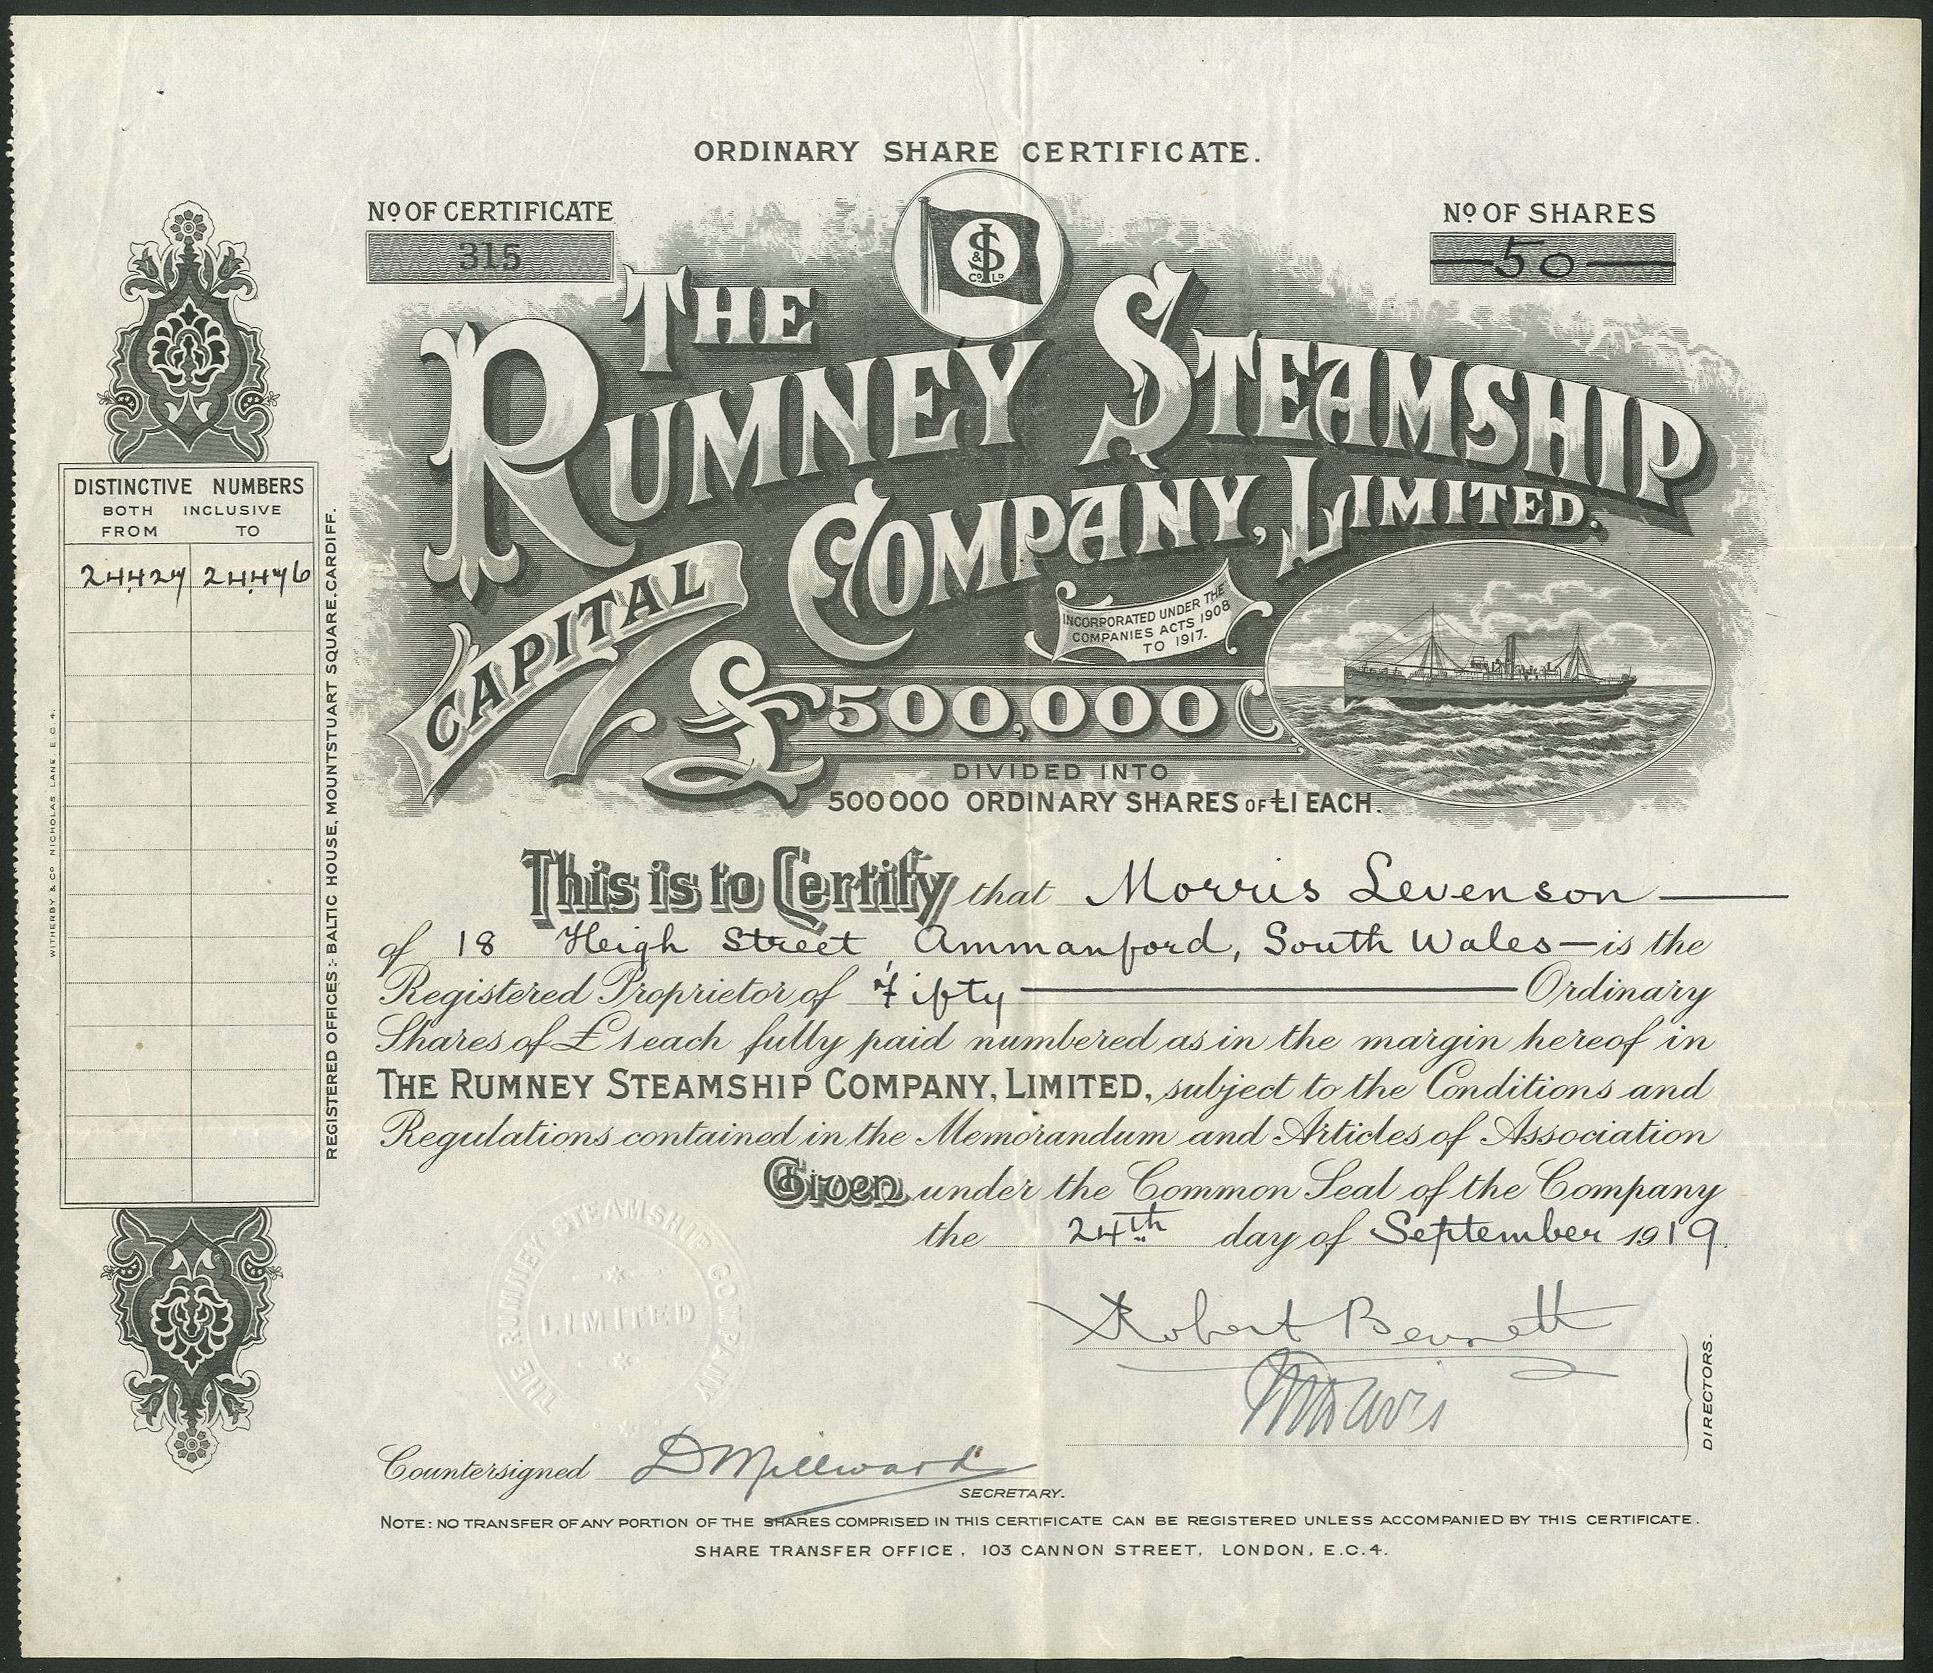 ORDINARY SHARE CERTIFICATE.
No OF CERTIFICATE
315
No OF SHARES
50
S & Co Ld
THE
RUMNEY STEAMSHIP
COMPANY, LIMITED.
INCORPORATED UNDER THE
COMPANIES ACTS 1908
TO 1917.
CAPITAL
£500,000
DIVIDED INTO
500000 ORDINARY SHARES OF £1 EACH.
DISTINCTIVE NUMBERS
BOTH INCLUSIVE
FROM TO
24427 24476
REGISTERED OFFICES:- BALTIC HOUSE, MOUNTSTUART SQUARE, CARDIFF.
WITHERBY & CO NICHOLAS LANE E.C.4.
This is to Certify that Morris Levenson
of 18 Heigh Street, Ammanford, South Wales is the
Registered Proprietor of Fifty Ordinary
Shares of £1 each fully paid numbered as in the margin hereof in
THE RUMNEY STEAMSHIP COMPANY, LIMITED, subject to the Conditions and
Regulations contained in the Memorandum and Articles of Association
Given under the Common Seal of the Company
the 24th day of September 1919.
THE RUMNEY STEAMSHIP COMPANY
LIMITED
Robert Bennett
Davis
DIRECTORS.
Countersigned D Millward
SECRETARY.
NOTE: NO TRANSFER OF ANY PORTION OF THE SHARES COMPRISED IN THIS CERTIFICATE CAN BE REGISTERED UNLESS ACCOMPANIED BY THIS CERTIFICATE.
SHARE TRANSFER OFFICE, 103 CANNON STREET, LONDON, E.C.4.